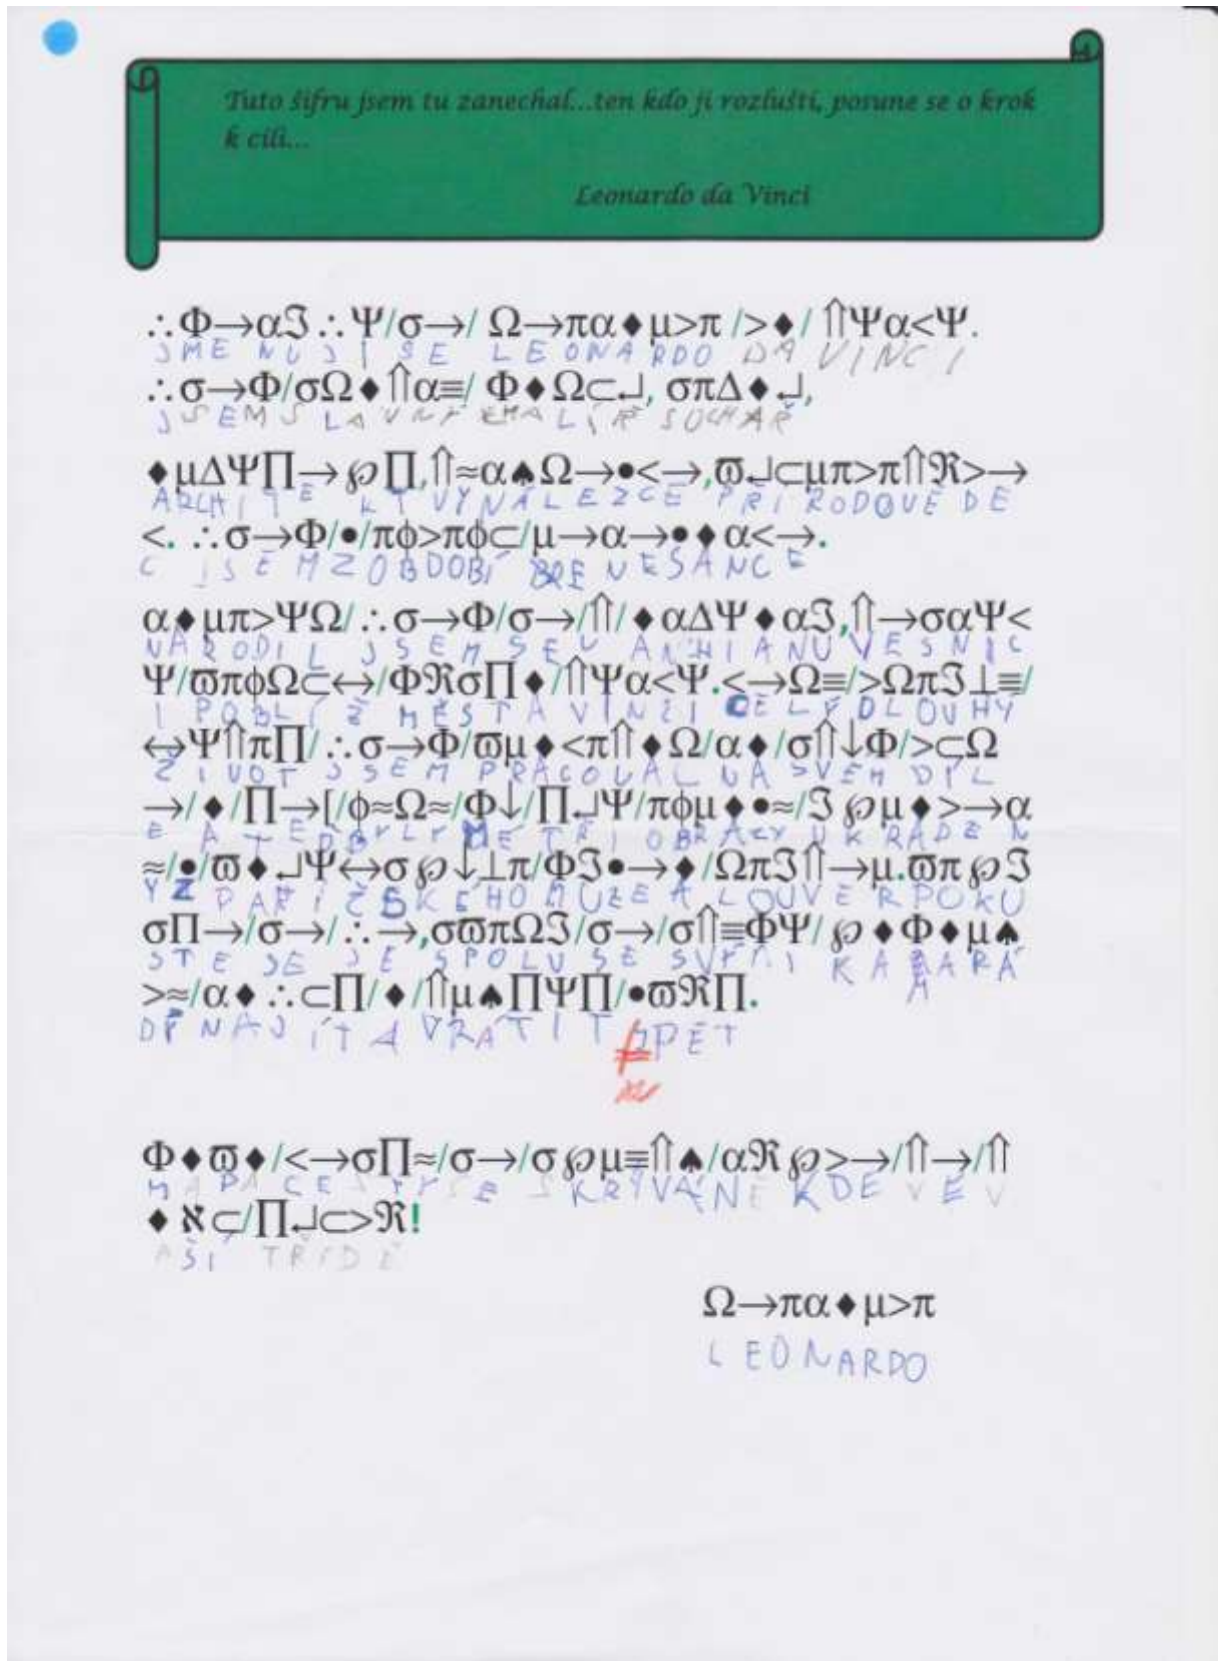 Tuto šifru jsem tu zanechal...ten kdo ji rozluští, posune se o krok
k cíli...
Leonardo da Vinci
∴Φ→αℑ∴Ψ/σ→/ Ω→πα♦μ>π />♦/ ⇑Ψα<Ψ.
JMENUJI SE LEONARDO DA VINCI
∴σ→Φ/σΩ♦⇑α≡/ Φ♦Ω⊂↵, σπΔ♦↵,
JSEM SLAVNÝ MALÍŘ SOCHAŘ
♦μΔΨ∏→℘∏,⇑≈α♠Ω→•<→,ϖ↵⊂μπ>π⇑ℜ>→
ARCHITEKT VYNÁLEZCE PŘÍRODOVĚDE
<. ∴σ→Φ/•/πϕ>πϕ⊂/μ→α→•♦α<→.
C JSEM Z OBDOBÍ RENESANCE
α♦μπ>ΨΩ/∴σ→Φ/σ→/⇑/♦αΔΨ♦αℑ,⇑→σαΨ<
NARODIL JSEM SE V ANCHIANU VESNIC
Ψ/ϖπϕΩ⊂↔/Φℜσ∏♦/⇑Ψα<Ψ.<→Ω≡/>Ωπℑ⊥≡/
I POBLÍŽ MĚSTA VINCI CELÝ DLOUHÝ
↔Ψ⇑π∏/∴σ→Φ/ϖμ♦<π⇑♦Ω/α♦/σ⇑↓Φ/>⊂Ω
ŽIVOT JSEM PRACOVAL NA SVÉM DÍL
→/♦/∏→[/ϕ≈Ω≈/Φ↓/∏↵Ψ/πϕμ♦•≈/ℑ℘μ♦>→α
E A TEĎ BYLY MÉ TŘI OBRAZY UKRADEN
≈/•/ϖ♦↵Ψ↔σ℘↓⊥π/Φℑ•→♦/Ωπℑ⇑→μ.ϖπ℘ℑ
Y Z PAŘIŽSKÉHO MUZEA LOUVER POKU
σ∏→/σ→/∴→,σϖπΩℑ/σ→/σ⇑≡ΦΨ/℘♦Φ♦μ♠
STE SE JE SPOLU SE SVÝMI KAMARÁ
>≈/α♦∴⊂∏/♦/⇑μ♠∏Ψ∏/•ϖℜ∏.
DY NAJÍT A VRÁTIT ZPĚT
Φ♦ϖ♦/<→σ∏≈/σ→/σ℘μ≡⇑♠/αℜ℘>→/⇑→/⇑
MAPA CESTY SE SKRÝVÁ NĚKDE VE V
♦ℵ⊂/∏↵⊂>ℜ!
AŠÍ TŘÍDĚ
Ω→πα♦μ>π
LEONARDO